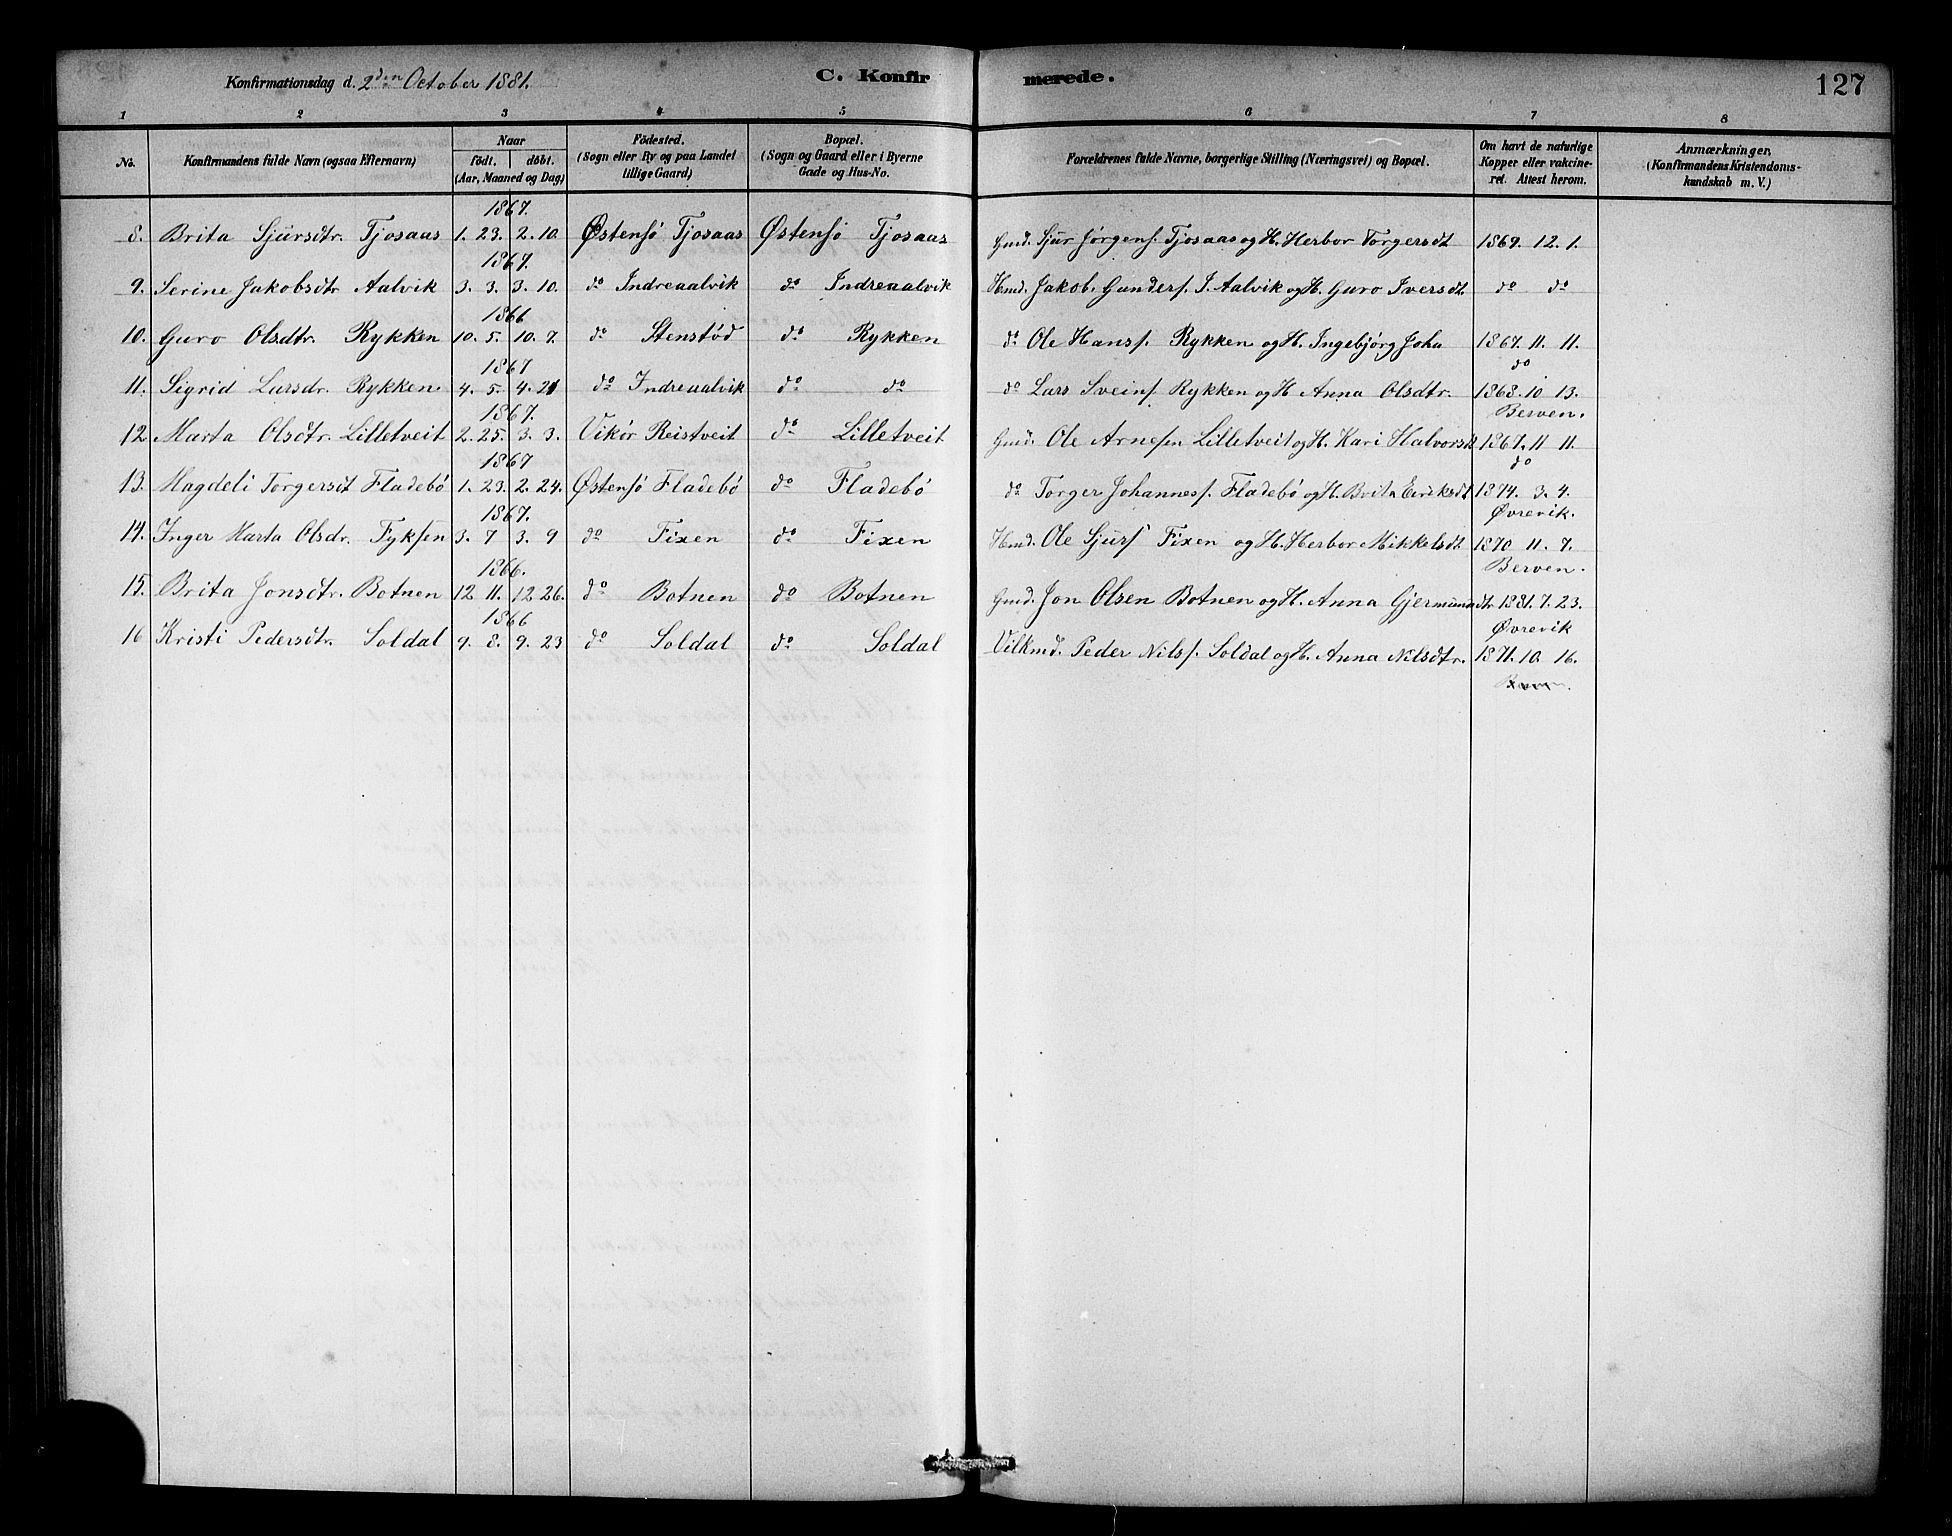 Konfirmationsdag d. 2den October 1881. C. Konfir merede. 127
1 2 3 4 5 6 7 8
No. Konfirmandens fulde Navn (ogsaa Efternavn) Naar födt. döbt. (Aar, Maaned og Dag) Födested. (Sogn eller By og paa Landet tillige Gaard) Bopæl. (Sogn og Gaard eller i Byerne Gade og Hus-No. Forældrenes fulde Navne, borgerlige Stilling (Næringsvei) og Bopæl. Om havt de naturlige Kopper eller vakcineret. Attest herom. Anmærkninger, (Konfirmandens Kristendomskundskab m. V.)
1867.
8. Brita Sjursdtr. Tjosaas 1. 23. 2. 10. Østensö Tjosaas Østensö Tjosaas Gmd. Sjur Jörgens. Tjosaas og H. Herbor Torgersdt 1869. 12. 1.
1867.
9. Serine Jakobsdtr Aalvik 3. 3. 3. 10. do Indreaalvik do Indreaalvik Hmd. Jakob. Gunders. I. Aalvik og H. Guro Iversdt. do do
1866
10. Guro Olsdtr. Rykken 10. 5. 10. 7. do Stenstöd do Rykken do Ole Hans. Rykken og H. Ingebjörg Joha 1867. 11. 11.
1867 do
11. Sigrid Larsdr. Rykken 4. 5. 4. 21 do Indreaalvik do do do Lars Sveins. Rykken og H. Anna Olsdtr. 1868. 10. 13.
1867. Berven.
12. Marta Olsdtr. Lilletveit 2. 25. 3. 3. Vikör Reistveit do Lilletveit Gmd. Ole Arnesen Lilletveit og H. Kari Halvorsdt 1867. 11 11.
1867 do
13. Magdeli Torgersdt Fladebö 1. 23. 2. 24. Østensö Fladebö do Fladebö do Torger Johanness. Fladebö og H. Brita Eiriksdt 1874. 3. 4.
1867. Øvrevik.
14. Inger Marta Olsdr. Fyksen 3. 7 3. 9 do Fixen do Fixen Hmd. Ole Sjurs. Fixen og H. Herbor Mikkelsdt 1870 11. 7.
1866. Berven.
15. Brita Jonsdtr. Botnen 12 11. 12 26. do Botnen do Botnen Gmd. Jon Olsen Botnen og H. Anna Gjermundtr 1881. 7. 23.
1866 Øvrevik
16 Kristi Pedersdtr. Soldal 9. 8. 9. 23 do Soldal do Soldal Vilkmd. Peder Nils. Soldal og H. Anna Nilsdtr. 1871. 10. 16.